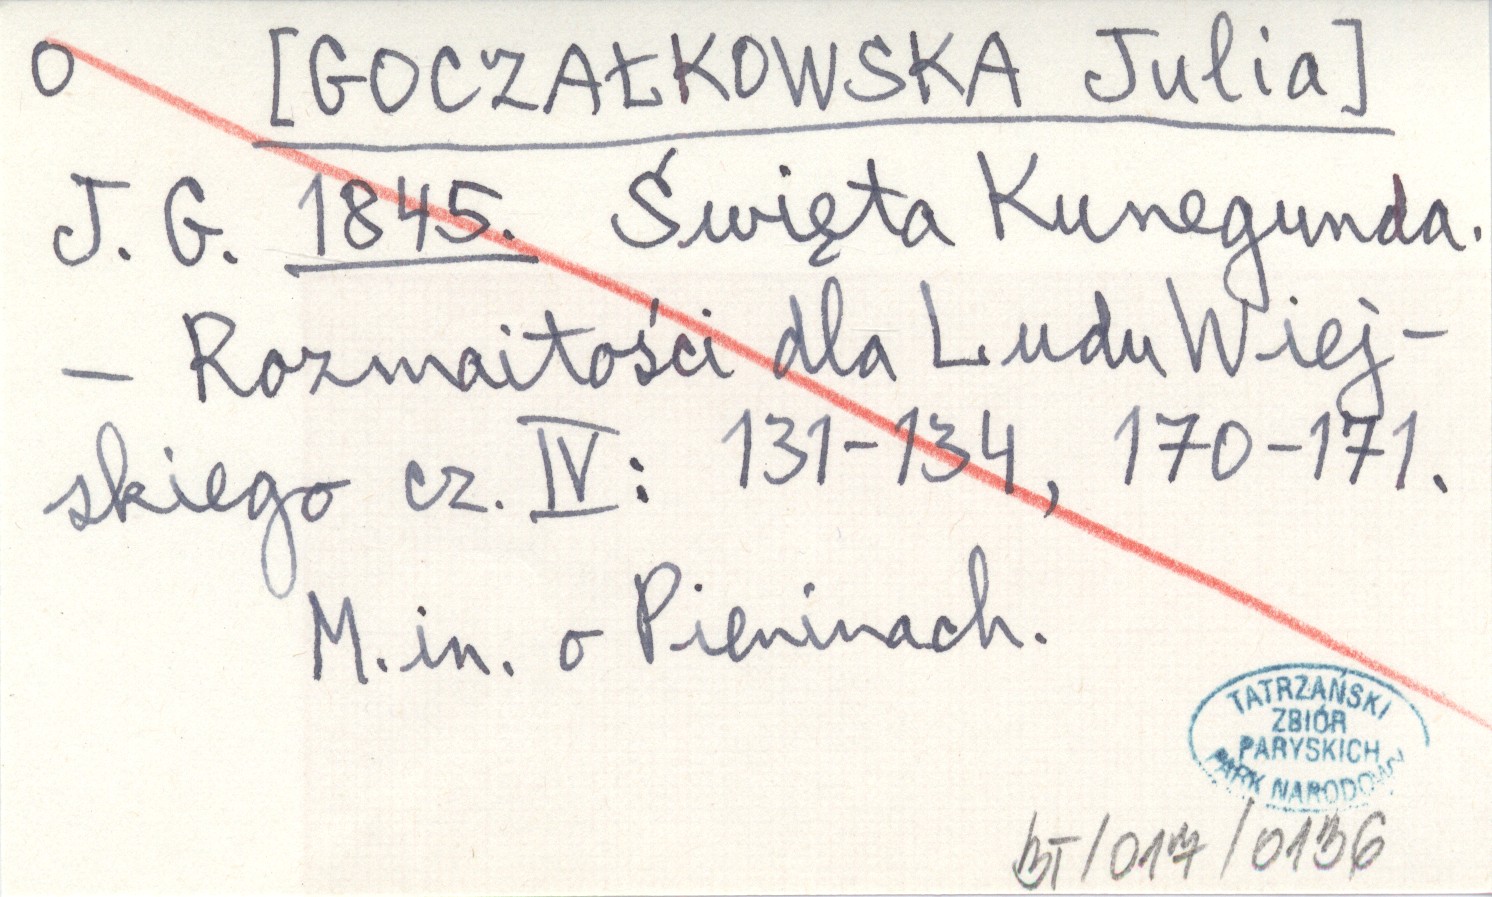 o [GOCZAŁKOWSKA Julia]
J. G. 1845. Święta Kunegunda.
— Rozmaitości dla Ludu Wiej-
skiego cz. IV: 131-134, 170-171.
M. in. o Pieninach.
TATRZAŃSKI
ZBIÓR
PARYSKICH
PARK NARODOWY
BT/017/0136